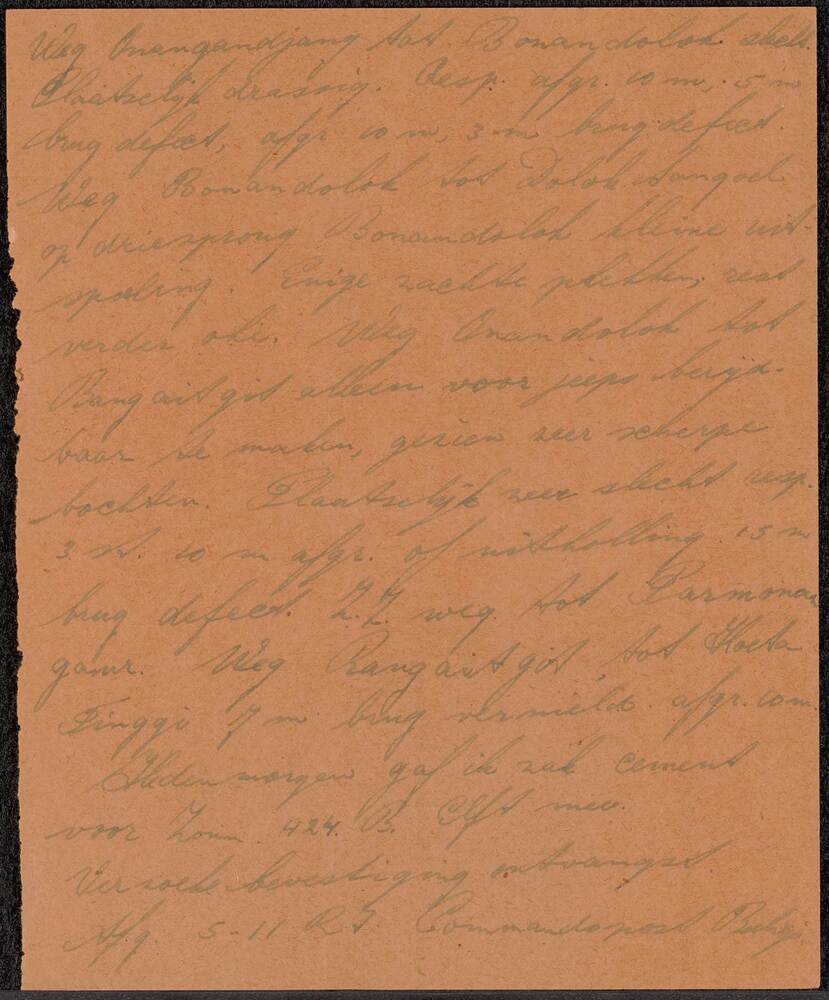 Weg Onangandjang tot Bonandolok slecht.
Plaatselijk drassig. Resp. afgr. 10 m, 5 m
brug defect, afgr 10 m, 3 m brug defect.
Weg Bonandolok tot Dolok
op driesprong Bonandolok kleine uit-
spoeling. Enige zachte plekken, rest
verder oke. Weg Onandolok tot
alleen voor jeeps berijd-
baar te maken, gezien zeer scherpe
bochten. Plaatselijk zeer slecht resp.
3 10 m afgr. of uitholling 15 m
brug defect. Z.Z. weg tot
Weg tot Hoeta
Tinggi 7 m brug vernield. afgr. 10 m.
Hedenmorgen gaf ik zak cement
voor 424. B. mee.
Verzoeke bevestiging ontvangst
Afg. 5-11 R.I. Commandopost